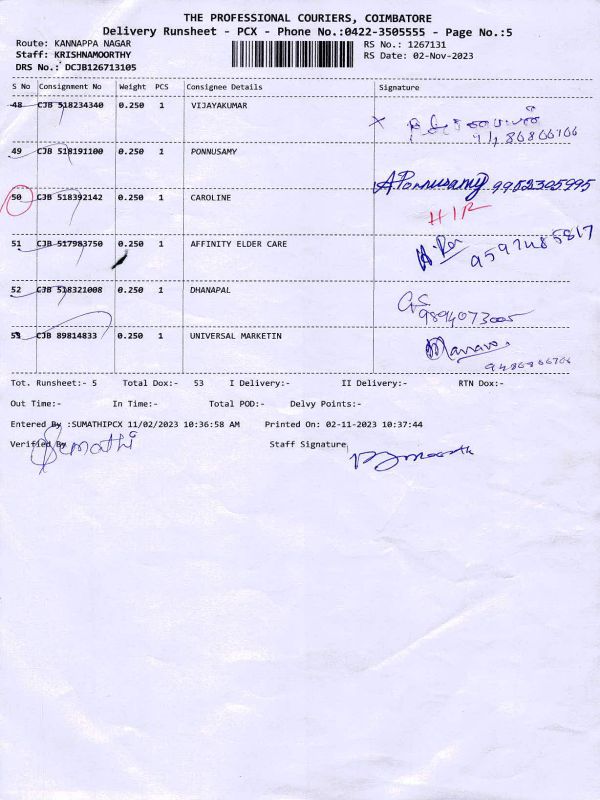 THE PROFESSIONAL COURIERS, COIMBATORE
Delivery Runsheet - PCX - Phone No.:0422-3505555 - Page No.:5
Route: KANNAPPA NAGAR RS No.: 1267131
Staff: KRISHNAMOORTHY RS Date: 02-Nov-2023
DRS No.: DCJB126713105
S No Consignment No Weight PCS Consignee Details Signature
48 CJB 518234340 0.250 1 VIJAYAKUMAR
49 CJB 518191100 0.250 1 PONNUSAMY
A Ponnusamy 9952305995
50 CJB 518392142 0.250 1 CAROLINE
51 CJB 517983750 0.250 1 AFFINITY ELDER CARE
9597485817
52 CJB 518321008 0.250 1 DHANAPAL
53 CJB 89814833 0.250 1 UNIVERSAL MARKETIN
Tot. Runsheet:- 5 Total Dox:- 53 I Delivery:- II Delivery:- RTN Dox:-
Out Time:- In Time:- Total POD:- Delvy Points:-
Entered By :SUMATHIPCX 11/02/2023 10:36:58 AM Printed On: 02-11-2023 10:37:44
Verified By Staff Signature
Sumathi